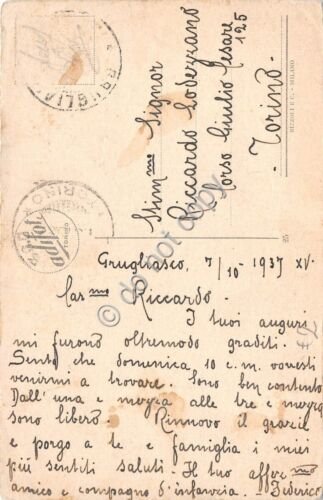 GRUGLIA
Stim.mo Signor
Riccardo Lodezzano
Corso Giulio Cesare
125
Torino
RIZZOLI E C. - MILANO
25
TORINO
adifot
TORINO
do not copy
Grugliasco, 7/10 - 1937 XV.
Cas.mo Riccardo.
I tuoi auguri
mi furono oltremodo graditi.
Sento che domenica, 10 c.m. vovesti
venirmi a trovare. Sono ben contento
Dall' una e mezza alle tre e mezza
sono libero. Rinnovo il grazie
e porgo a te e famiglia i miei
più sentiti saluti. Il tuo affez.mo
amico e compagno d'infanzia Federico